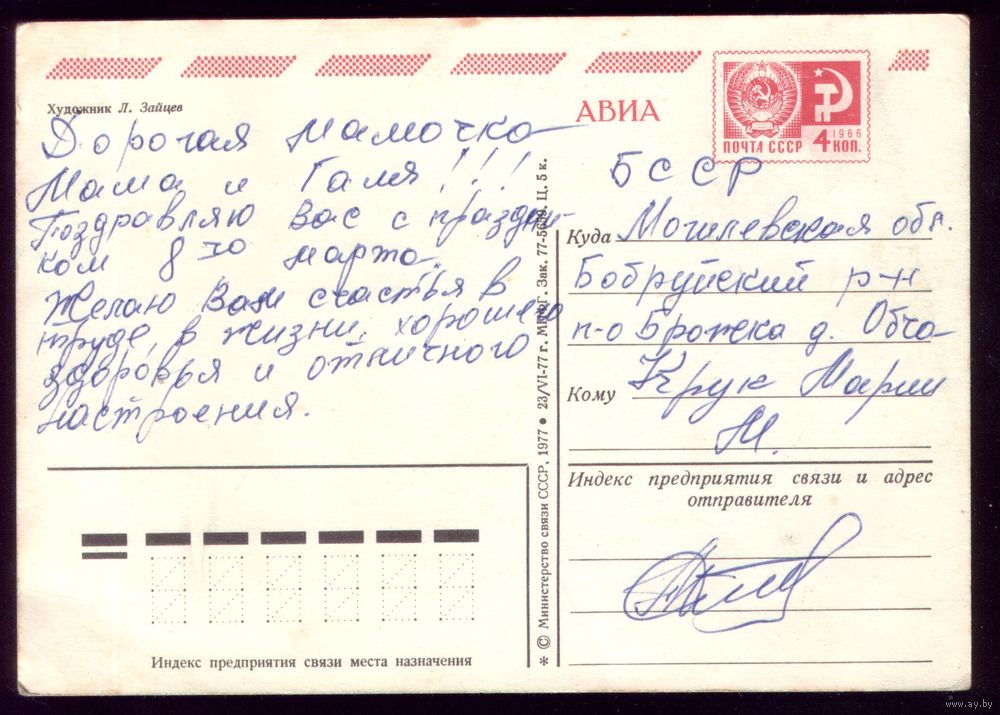 Художник Л. Зайцев
Дорогая мамочка
Мама и Галя!!!
Поздравляю Вас с праздни-
ком 8ю марта.
Желаю Вам счастья в
труде, в жизни, хорошего
здоровья и отличного
настроения.
Индекс предприятия связи места назначения
* © Министерство связи СССР, 1977 • 23/VI-77 г. Зак. 77- Ц. 5 к.
АВИА
ПОЧТА СССР
1966
4 КОП.
БССР
Куда Могилевская обл.
Бобруйский р-н
п-о Брожка д.
Кому Крук Марии
М.
Индекс предприятия связи и адрес
отправителя
www.ay.by